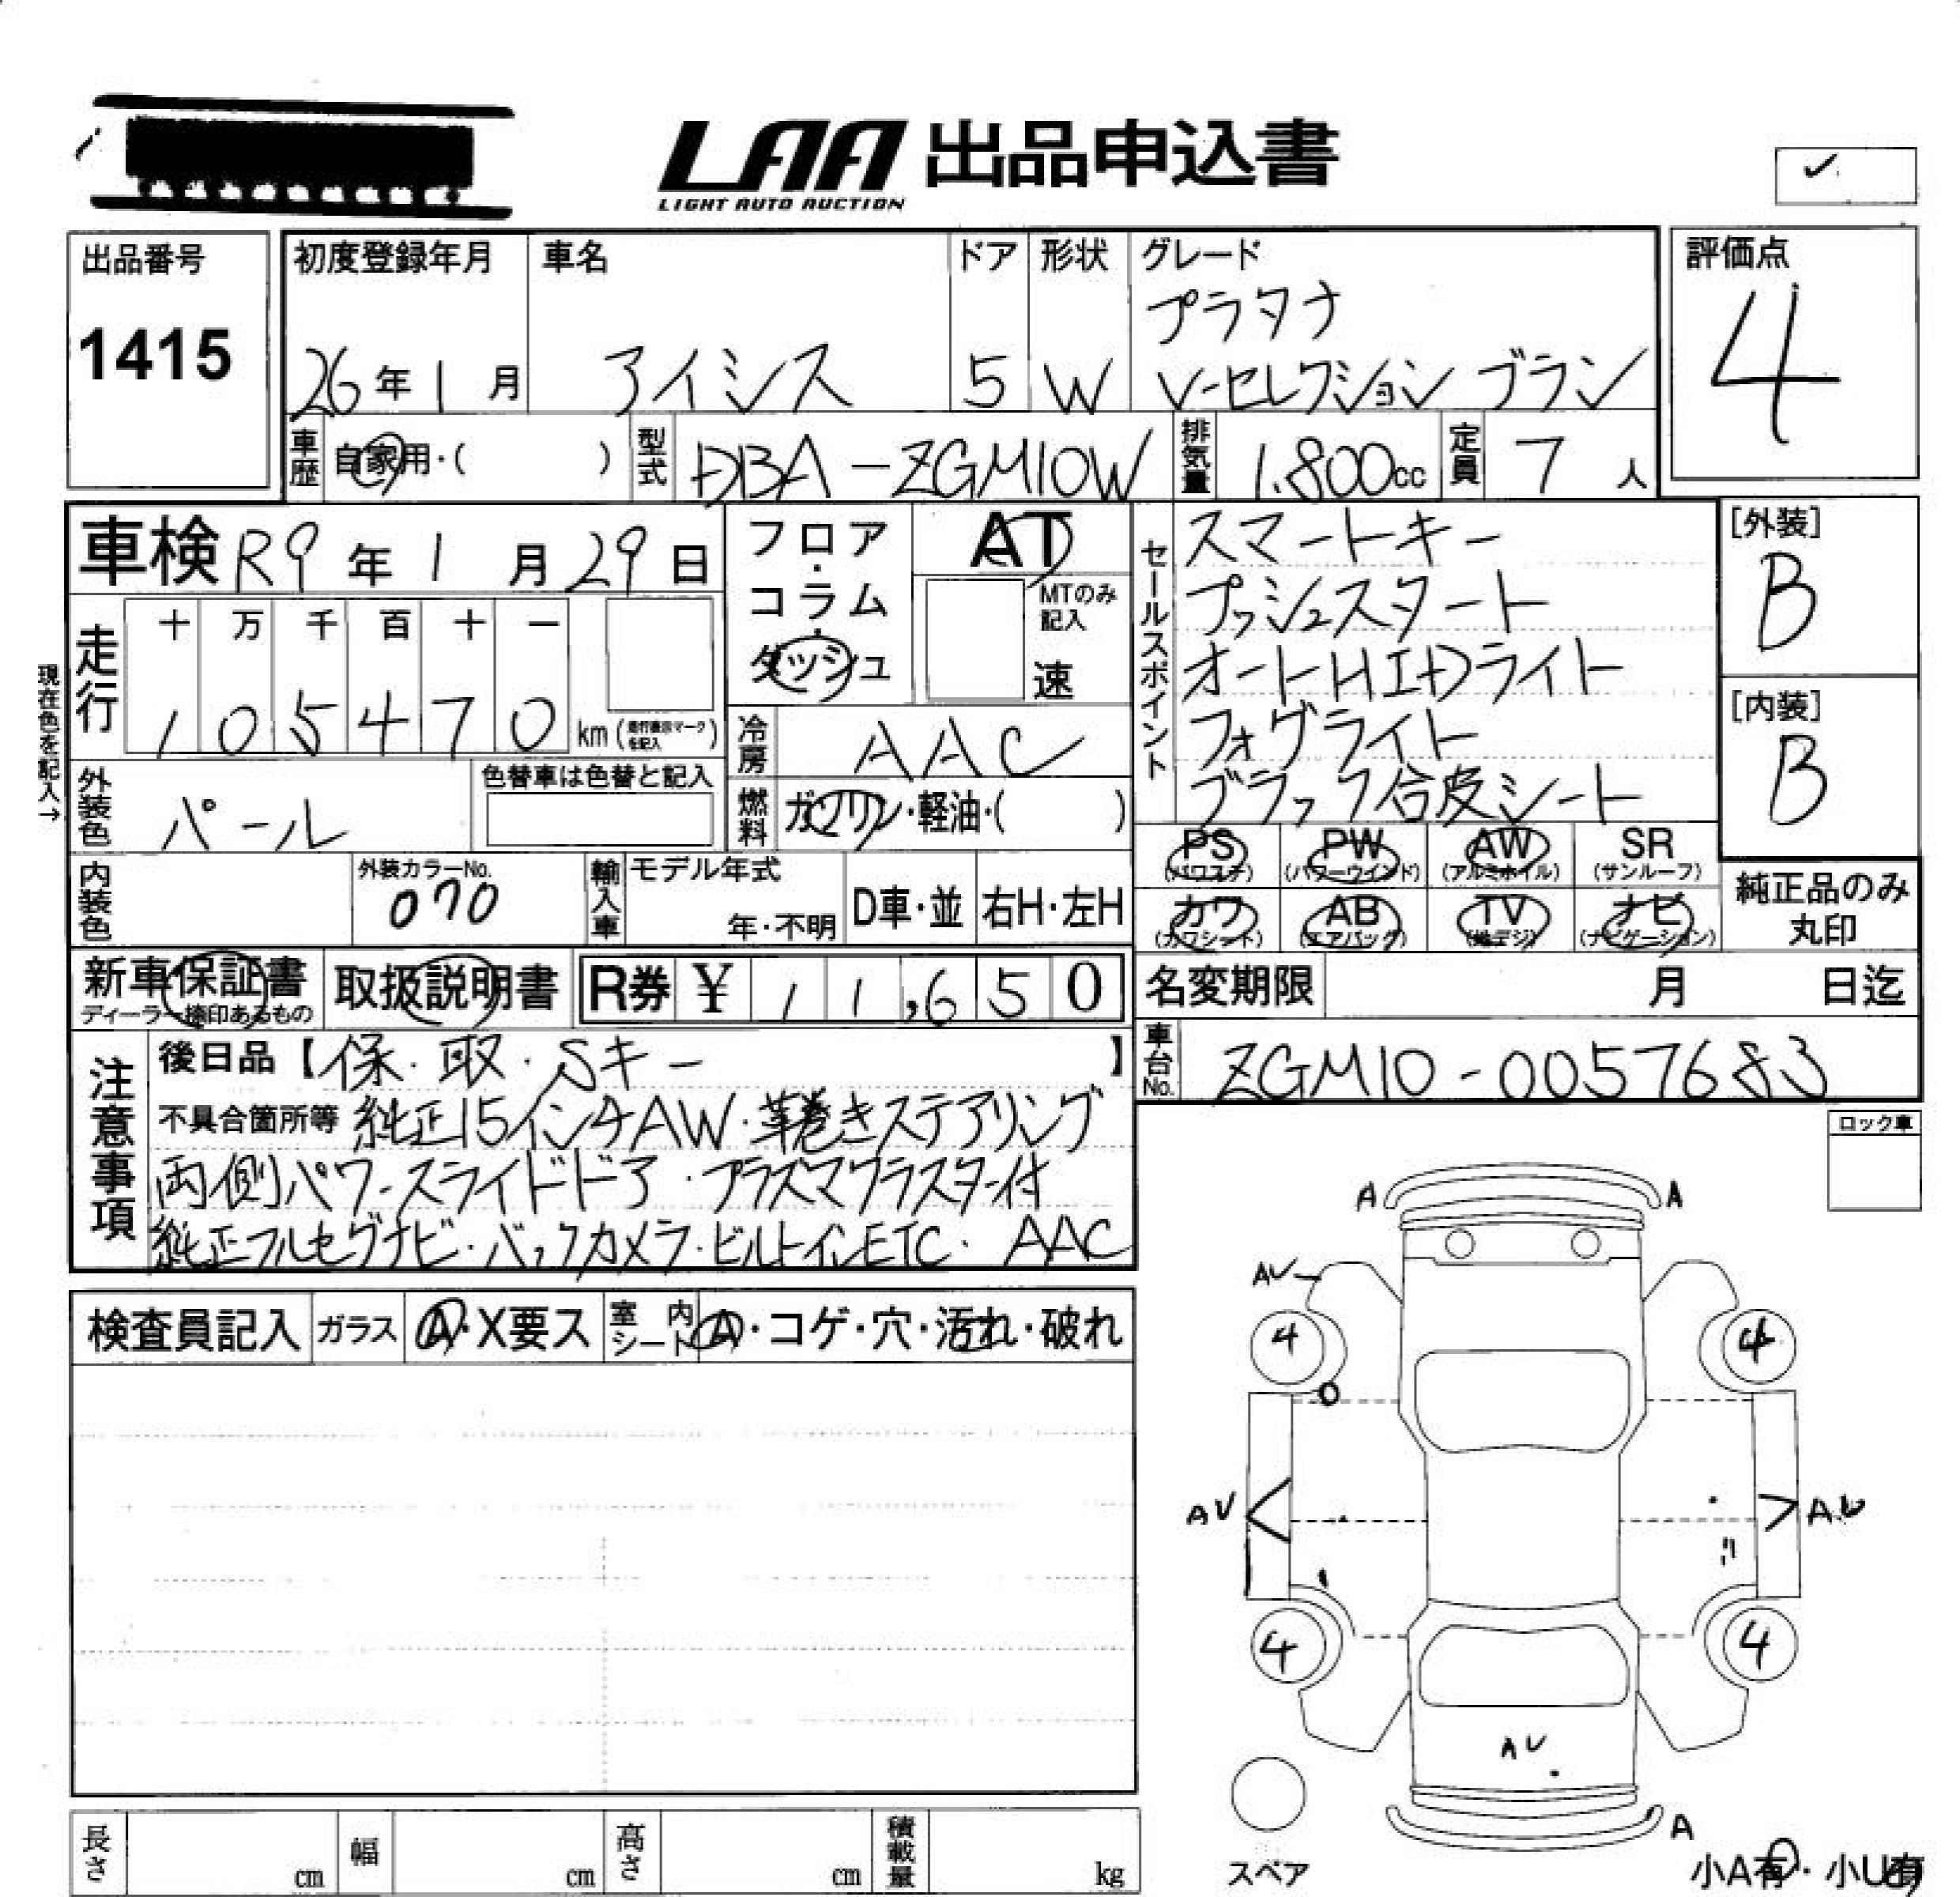 LAA 出品申込書
LIGHT AUTO AUCTION
出品番号
1415
初度登録年月
26年1月
車名
アイシス
ドア
5
形状
W
グレード
プラタナ
V-セレクション ブラン
評価点
4
車歴
自家用・( )
型式
DBA-ZGM10W
排気量
1.800cc
定員
7人
車検 R9年1月29日
フロア・コラム・ダッシュ
AT
MTのみ記入
速
セールスポイント
スマートキー
プッシュスタート
オートHIDライト
フォグライト
ブラック合皮シート
[外装]
B
[内装]
B
現在色を記入→
走行
十 万 千 百 十 一
1 0 5 4 7 0 km (走行表示マークを記入)
冷房
AAC
外装色
パール
色替車は色替と記入
燃料
ガソリン・軽油・( )
PS (パワステ)
PW (パワーウインド)
AW (アルミホイル)
SR (サンルーフ)
カワ (カワシート)
AB (エアバッグ)
TV (地デジ)
ナビ (ナビゲーション)
純正品のみ丸印
内装色
外装カラーNo.
070
輸入車
モデル年式
年・不明
D車・並
右H・左H
新車保証書
ディーラー捺印あるもの
取扱説明書
R券 ¥ 11,650
名変期限 月 日迄
車台No.
ZGM10-0057683
注意事項
後日品【保・取・Sキー 】
不具合箇所等 純正15インチAW・革巻きステアリング
両側パワースライドドア・プラズマクラスター付
純正フルセグナビ・バックカメラ・ビルトインETC・AAC
ロック車
検査員記入 ガラス A・X要ス 室内シート A・コゲ・穴・汚れ・破れ
A A
AV
4 4
AV AU
4 4
AV
A
スペア
小A有・小U有
長さ cm 幅 cm 高さ cm 積載量 kg